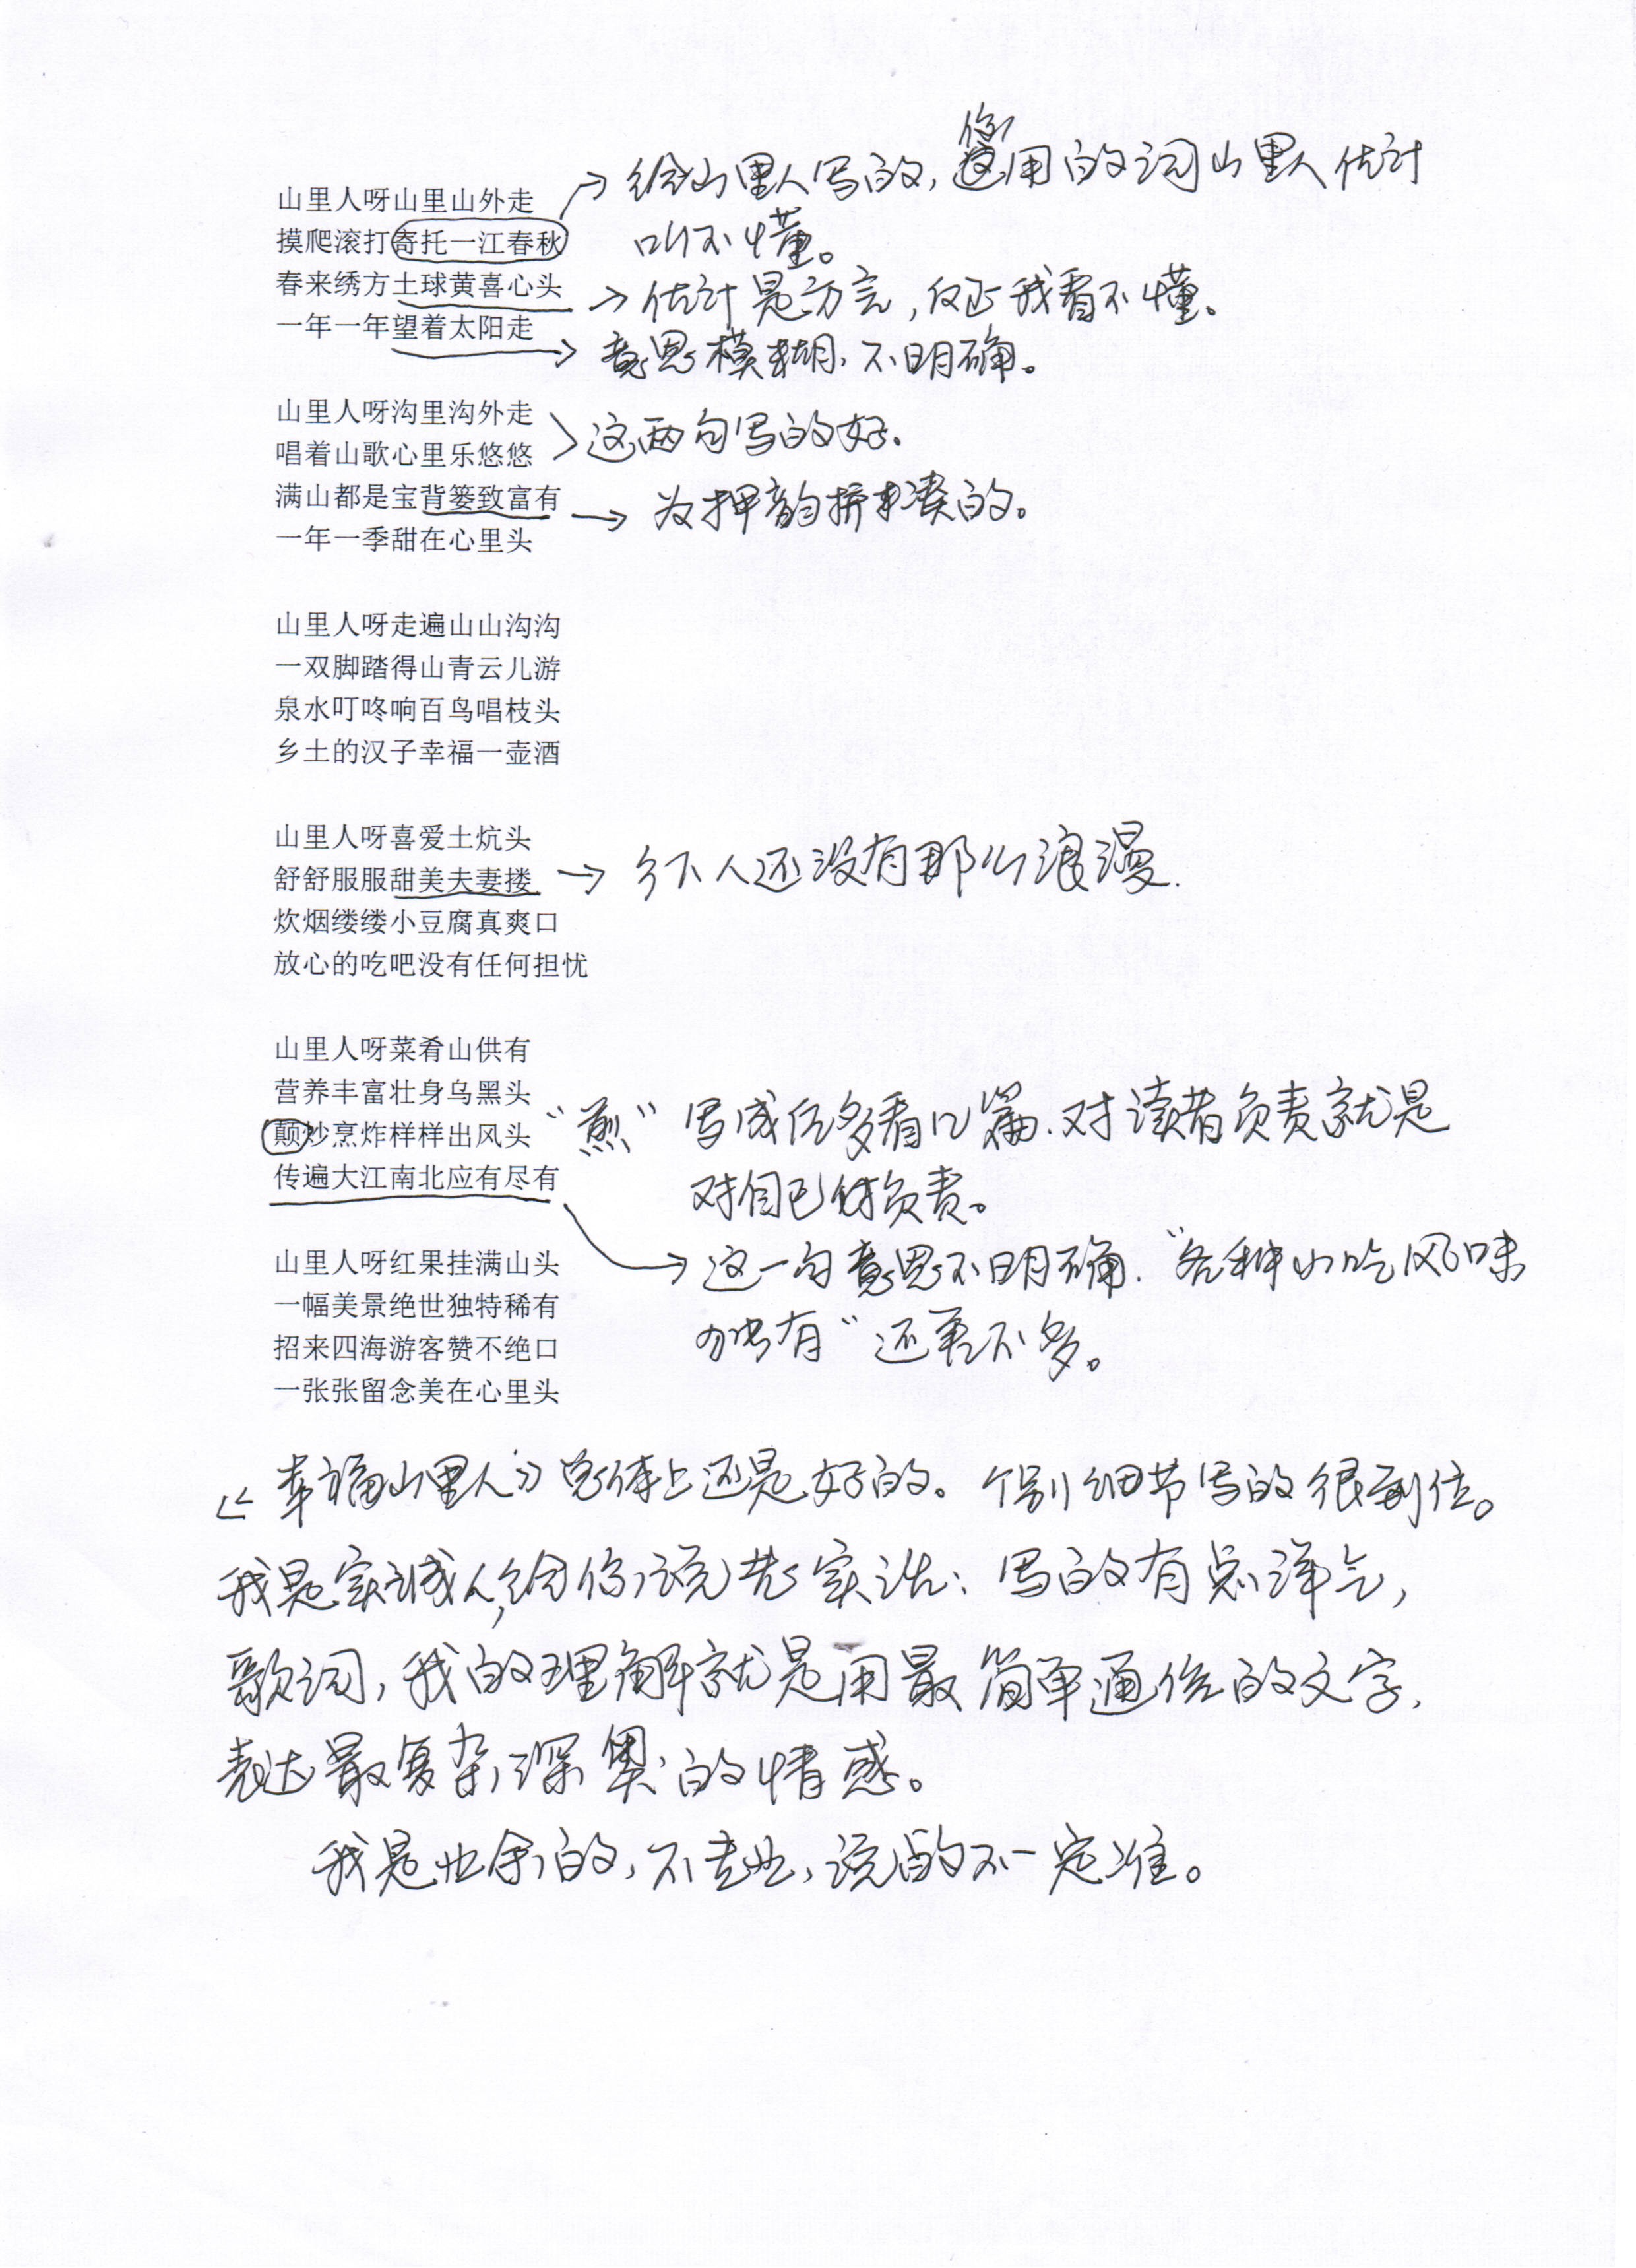 山里人呀山里山外走
摸爬滚打寄托一江春秋
春来绣方土球黄喜心头
一年一年望着太阳走
给山里人写的，您用的词山里人估计
听不懂。
估计是方言，反正我看不懂。
意思模糊、不明确。
山里人呀沟里沟外走
唱着山歌心里乐悠悠
满山都是宝背篓致富有
一年一季甜在心里头
这两句写的好.
为押韵拼凑的。
山里人呀走遍山山沟沟
一双脚踏得山青云儿游
泉水叮咚响百鸟唱枝头
乡土的汉子幸福一壶酒
山里人呀喜爱土炕头
舒舒服服甜美夫妻搂
炊烟缕缕小豆腐真爽口
放心的吃吧没有任何担忧
乡下人还没有那么浪漫.
山里人呀菜肴山供有
营养丰富壮身乌黑头
颠炒烹炸样样出风头
传遍大江南北应有尽有
“煎” 写成后多看几篇.对读者负责就是
对自己负责。
这一句意思不明确.“各种小吃风味
独有”还差不多。
山里人呀红果挂满山头
一幅美景绝世独特稀有
招来四海游客赞不绝口
一张张留念美在心里头
《幸福山里人》总体上还是好的。个别细节写的很到位。
我是实诚人,给你说些实话：写的有点洋气，
歌词，我的理解就是用最简单通俗的文字，
表达最复杂深奥的情感。
我是业余的，不专业，说的不一定准。